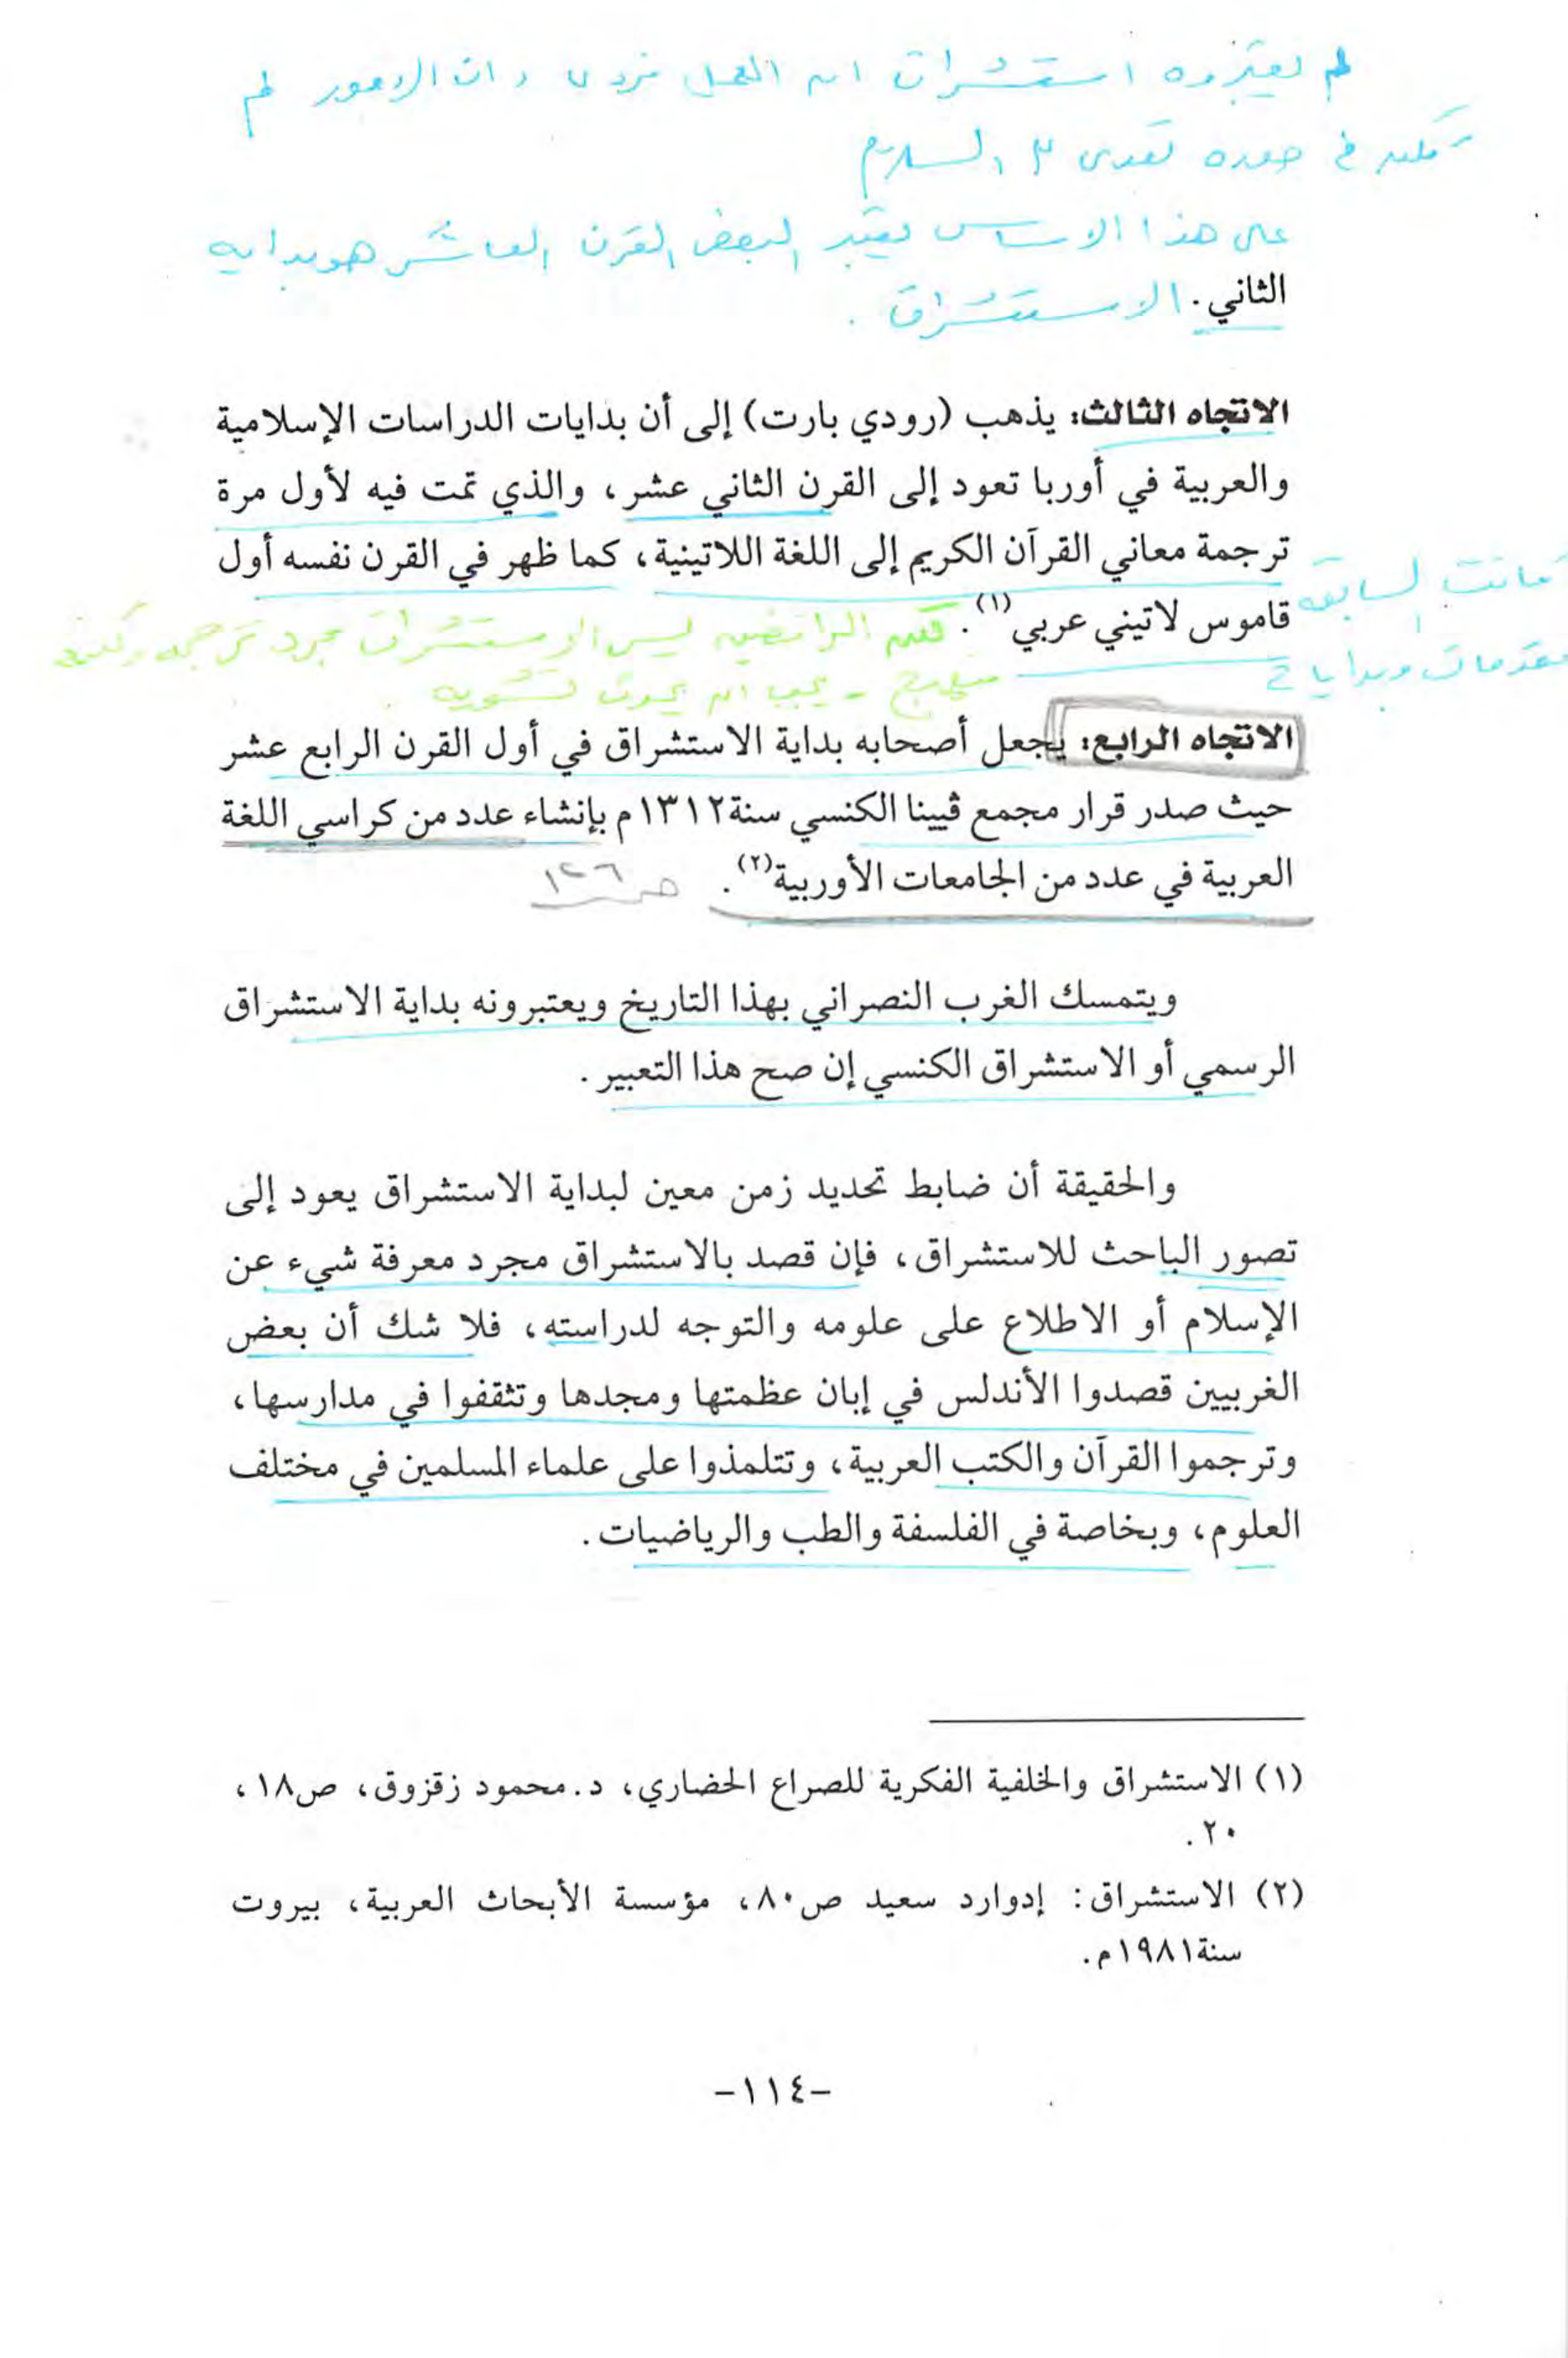 لم يعتبروه استشراق ان العمل فردى وان الامور لم
تكن فى صوره تعدى
على هذا الاساس يعتبر البعض القرن العاشر هو بدايه
الثاني. الاستشراق.
الاتجاه الثالث: يذهب (رودي بارت) إلى أن بدايات الدراسات الإسلامية
والعربية في أوربا تعود إلى القرن الثاني عشر، والذي تمت فيه لأول مرة
ترجمة معاني القرآن الكريم إلى اللغة اللاتينية، كما ظهر في القرن نفسه أول
كانت السابقه
قاموس لاتيني عربي(١). لكن الرافضين ليس الاستشراق مجرد ترجمه ولكنه
مقدمات وبدايات
منهج - يجب ان يكون
الاتجاه الرابع: يجعل أصحابه بداية الاستشراق في أول القرن الرابع عشر
حيث صدر قرار مجمع ڤيينا الكنسي سنة١٣١٢م بإنشاء عدد من كراسي اللغة
العربية في عدد من الجامعات الأوربية(٢). ص ١٢٦
ويتمسك الغرب النصراني بهذا التاريخ ويعتبرونه بداية الاستشراق
الرسمي أو الاستشراق الكنسي إن صح هذا التعبير.
والحقيقة أن ضابط تحديد زمن معين لبداية الاستشراق يعود إلى
تصور الباحث للاستشراق، فإن قصد بالاستشراق مجرد معرفة شيء عن
الإسلام أو الاطلاع على علومه والتوجه لدراسته، فلا شك أن بعض
الغربيين قصدوا الأندلس في إبان عظمتها ومجدها وتثقفوا في مدارسها،
وترجموا القرآن والكتب العربية، وتتلمذوا على علماء المسلمين في مختلف
العلوم، وبخاصة في الفلسفة والطب والرياضيات.
(١) الاستشراق والخلفية الفكرية للصراع الحضاري، د.محمود زقزوق، ص١٨،
٢٠.
(٢) الاستشراق: إدوارد سعيد ص٨٠، مؤسسة الأبحاث العربية، بيروت
سنة١٩٨١م.
-١١٤-